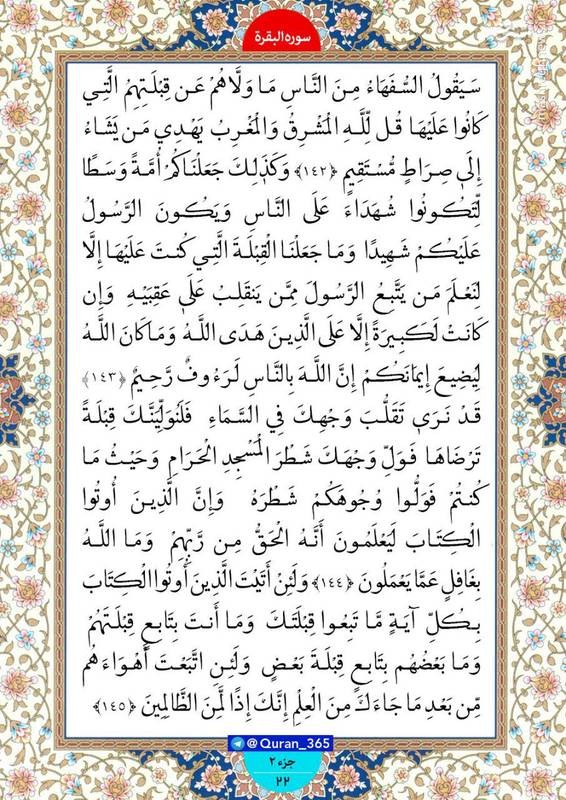 سوره البقرة
سَيَقُولُ السُّفَهَاءُ مِنَ النَّاسِ مَا وَلَّاهُمْ عَن قِبْلَتِهِمُ الَّتِي
كَانُوا عَلَيْهَا قُل لِّلَّهِ الْمَشْرِقُ وَالْمَغْرِبُ يَهْدِي مَن يَشَاءُ
إِلَىٰ صِرَاطٍ مُّسْتَقِيمٍ ﴿١٤٢﴾ وَكَذَٰلِكَ جَعَلْنَاكُمْ أُمَّةً وَسَطًا
لِّتَكُونُوا شُهَدَاءَ عَلَى النَّاسِ وَيَكُونَ الرَّسُولُ
عَلَيْكُمْ شَهِيدًا وَمَا جَعَلْنَا الْقِبْلَةَ الَّتِي كُنتَ عَلَيْهَا إِلَّا
لِنَعْلَمَ مَن يَتَّبِعُ الرَّسُولَ مِمَّن يَنقَلِبُ عَلَىٰ عَقِبَيْهِ وَإِن
كَانَتْ لَكَبِيرَةً إِلَّا عَلَى الَّذِينَ هَدَى اللَّهُ وَمَا كَانَ اللَّهُ
لِيُضِيعَ إِيمَانَكُمْ إِنَّ اللَّهَ بِالنَّاسِ لَرَءُوفٌ رَّحِيمٌ ﴿١٤٣﴾
قَدْ نَرَىٰ تَقَلُّبَ وَجْهِكَ فِي السَّمَاءِ فَلَنُوَلِّيَنَّكَ قِبْلَةً
تَرْضَاهَا فَوَلِّ وَجْهَكَ شَطْرَ الْمَسْجِدِ الْحَرَامِ وَحَيْثُ مَا
كُنتُمْ فَوَلُّوا وُجُوهَكُمْ شَطْرَهُ وَإِنَّ الَّذِينَ أُوتُوا
الْكِتَابَ لَيَعْلَمُونَ أَنَّهُ الْحَقُّ مِن رَّبِّهِمْ وَمَا اللَّهُ
بِغَافِلٍ عَمَّا يَعْمَلُونَ ﴿١٤٤﴾ وَلَئِنْ أَتَيْتَ الَّذِينَ أُوتُوا الْكِتَابَ
بِكُلِّ آيَةٍ مَّا تَبِعُوا قِبْلَتَكَ وَمَا أَنتَ بِتَابِعٍ قِبْلَتَهُمْ
وَمَا بَعْضُهُم بِتَابِعٍ قِبْلَةَ بَعْضٍ وَلَئِنِ اتَّبَعْتَ أَهْوَاءَهُم
مِّن بَعْدِ مَا جَاءَكَ مِنَ الْعِلْمِ إِنَّكَ إِذًا لَّمِنَ الظَّالِمِينَ ﴿١٤٥﴾
@Quran_365
جزء ٢
٢٢